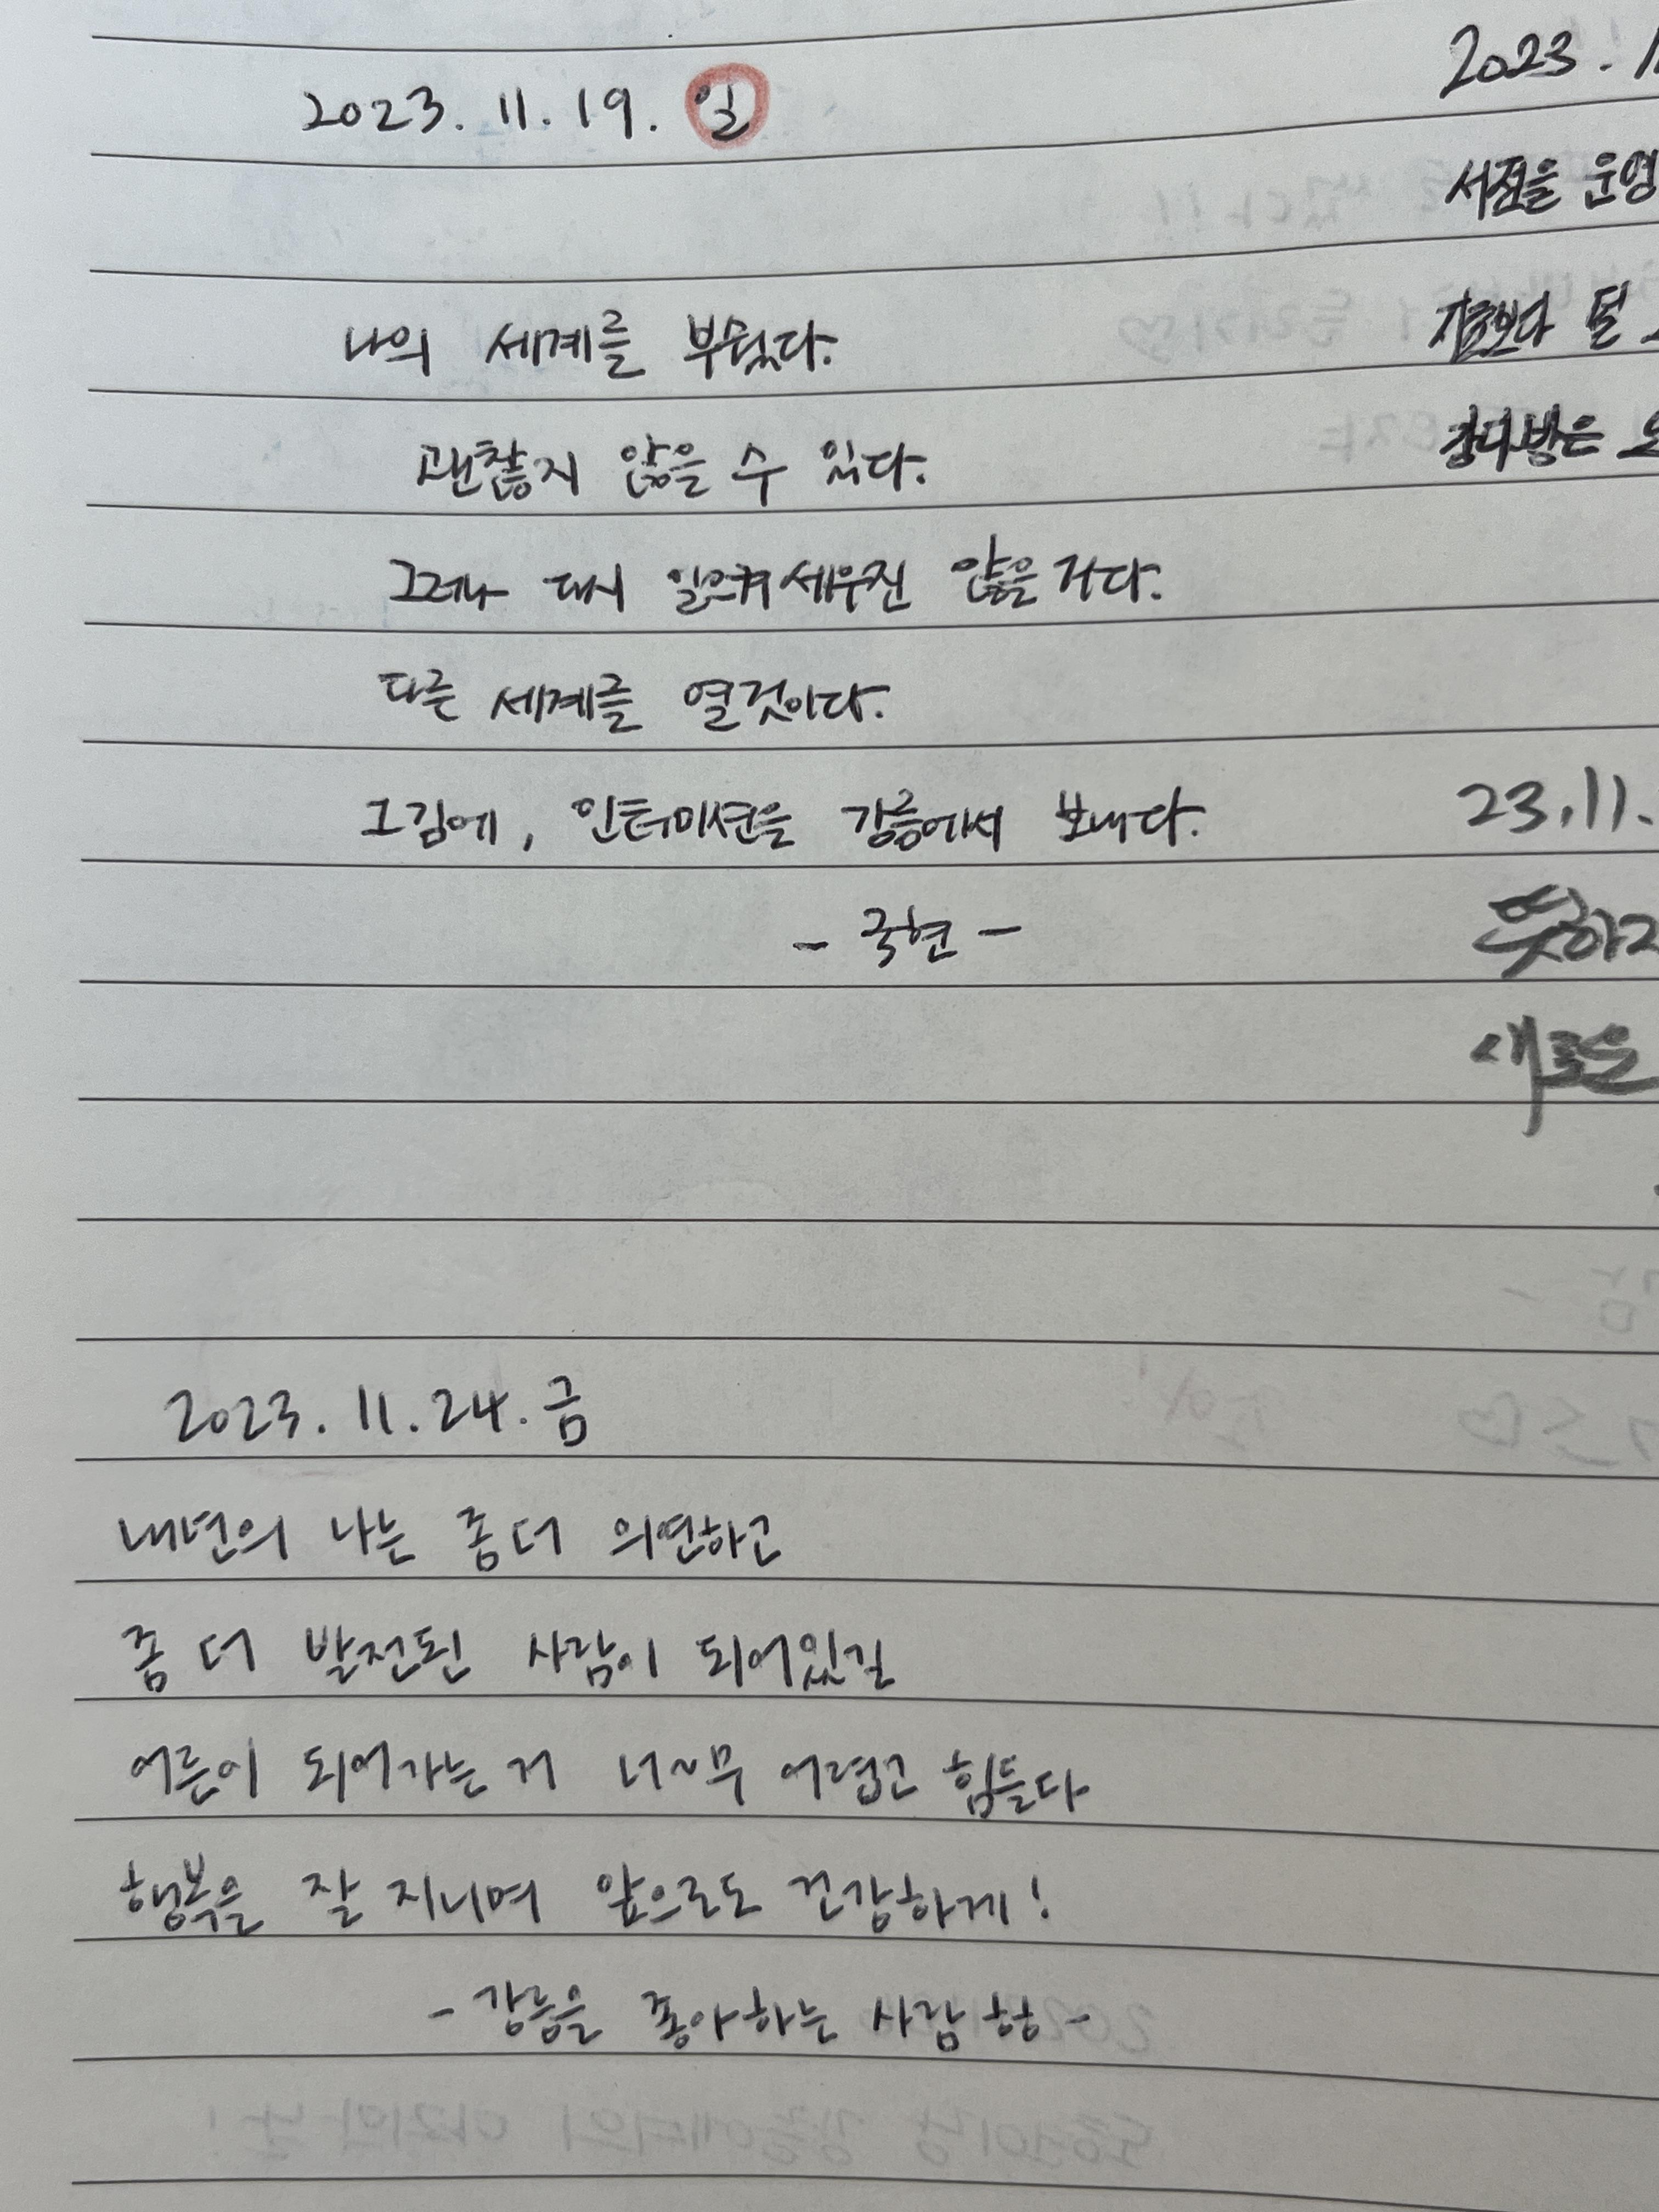 2023. 11. 19. 일
나의 세계를 부쉈다.
괜찮지 않을 수 있다.
그러나 다시 일으켜 세우진 않을거다.
다른 세계를 열것이다.
그김에, 인터미션을 강릉에서 보내다.
- 국현 -
2023. 11. 24. 금
내년의 나는 좀 더 의연하고
좀 더 발전된 사람이 되어있길
어른이 되어가는 거 너~무 어렵고 힘들다
행복을 잘 지니며 앞으로도 건강하게!
- 강릉을 좋아하는 사람 헝 -
2023. 1
서점을 운영
지금보다 덜
강다방은
23.11.
뜻하고
새로운